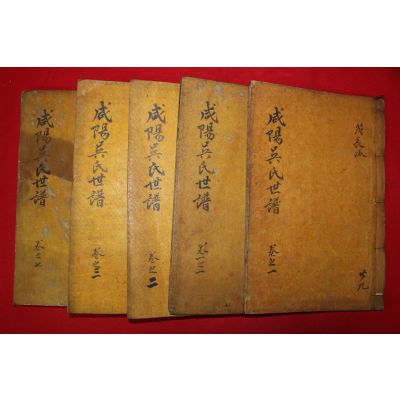 咸陽吳氏世譜
卷之一
共九
咸陽吳氏世譜
咸陽吳氏世譜
卷之二
咸陽吳氏世譜
卷之三
咸陽吳氏世譜
卷之七